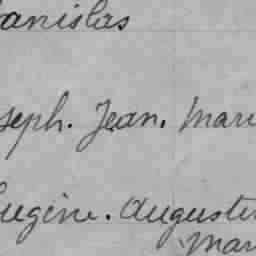 anislas
seph. Jean. Mari
ugène. Auguste
Mar